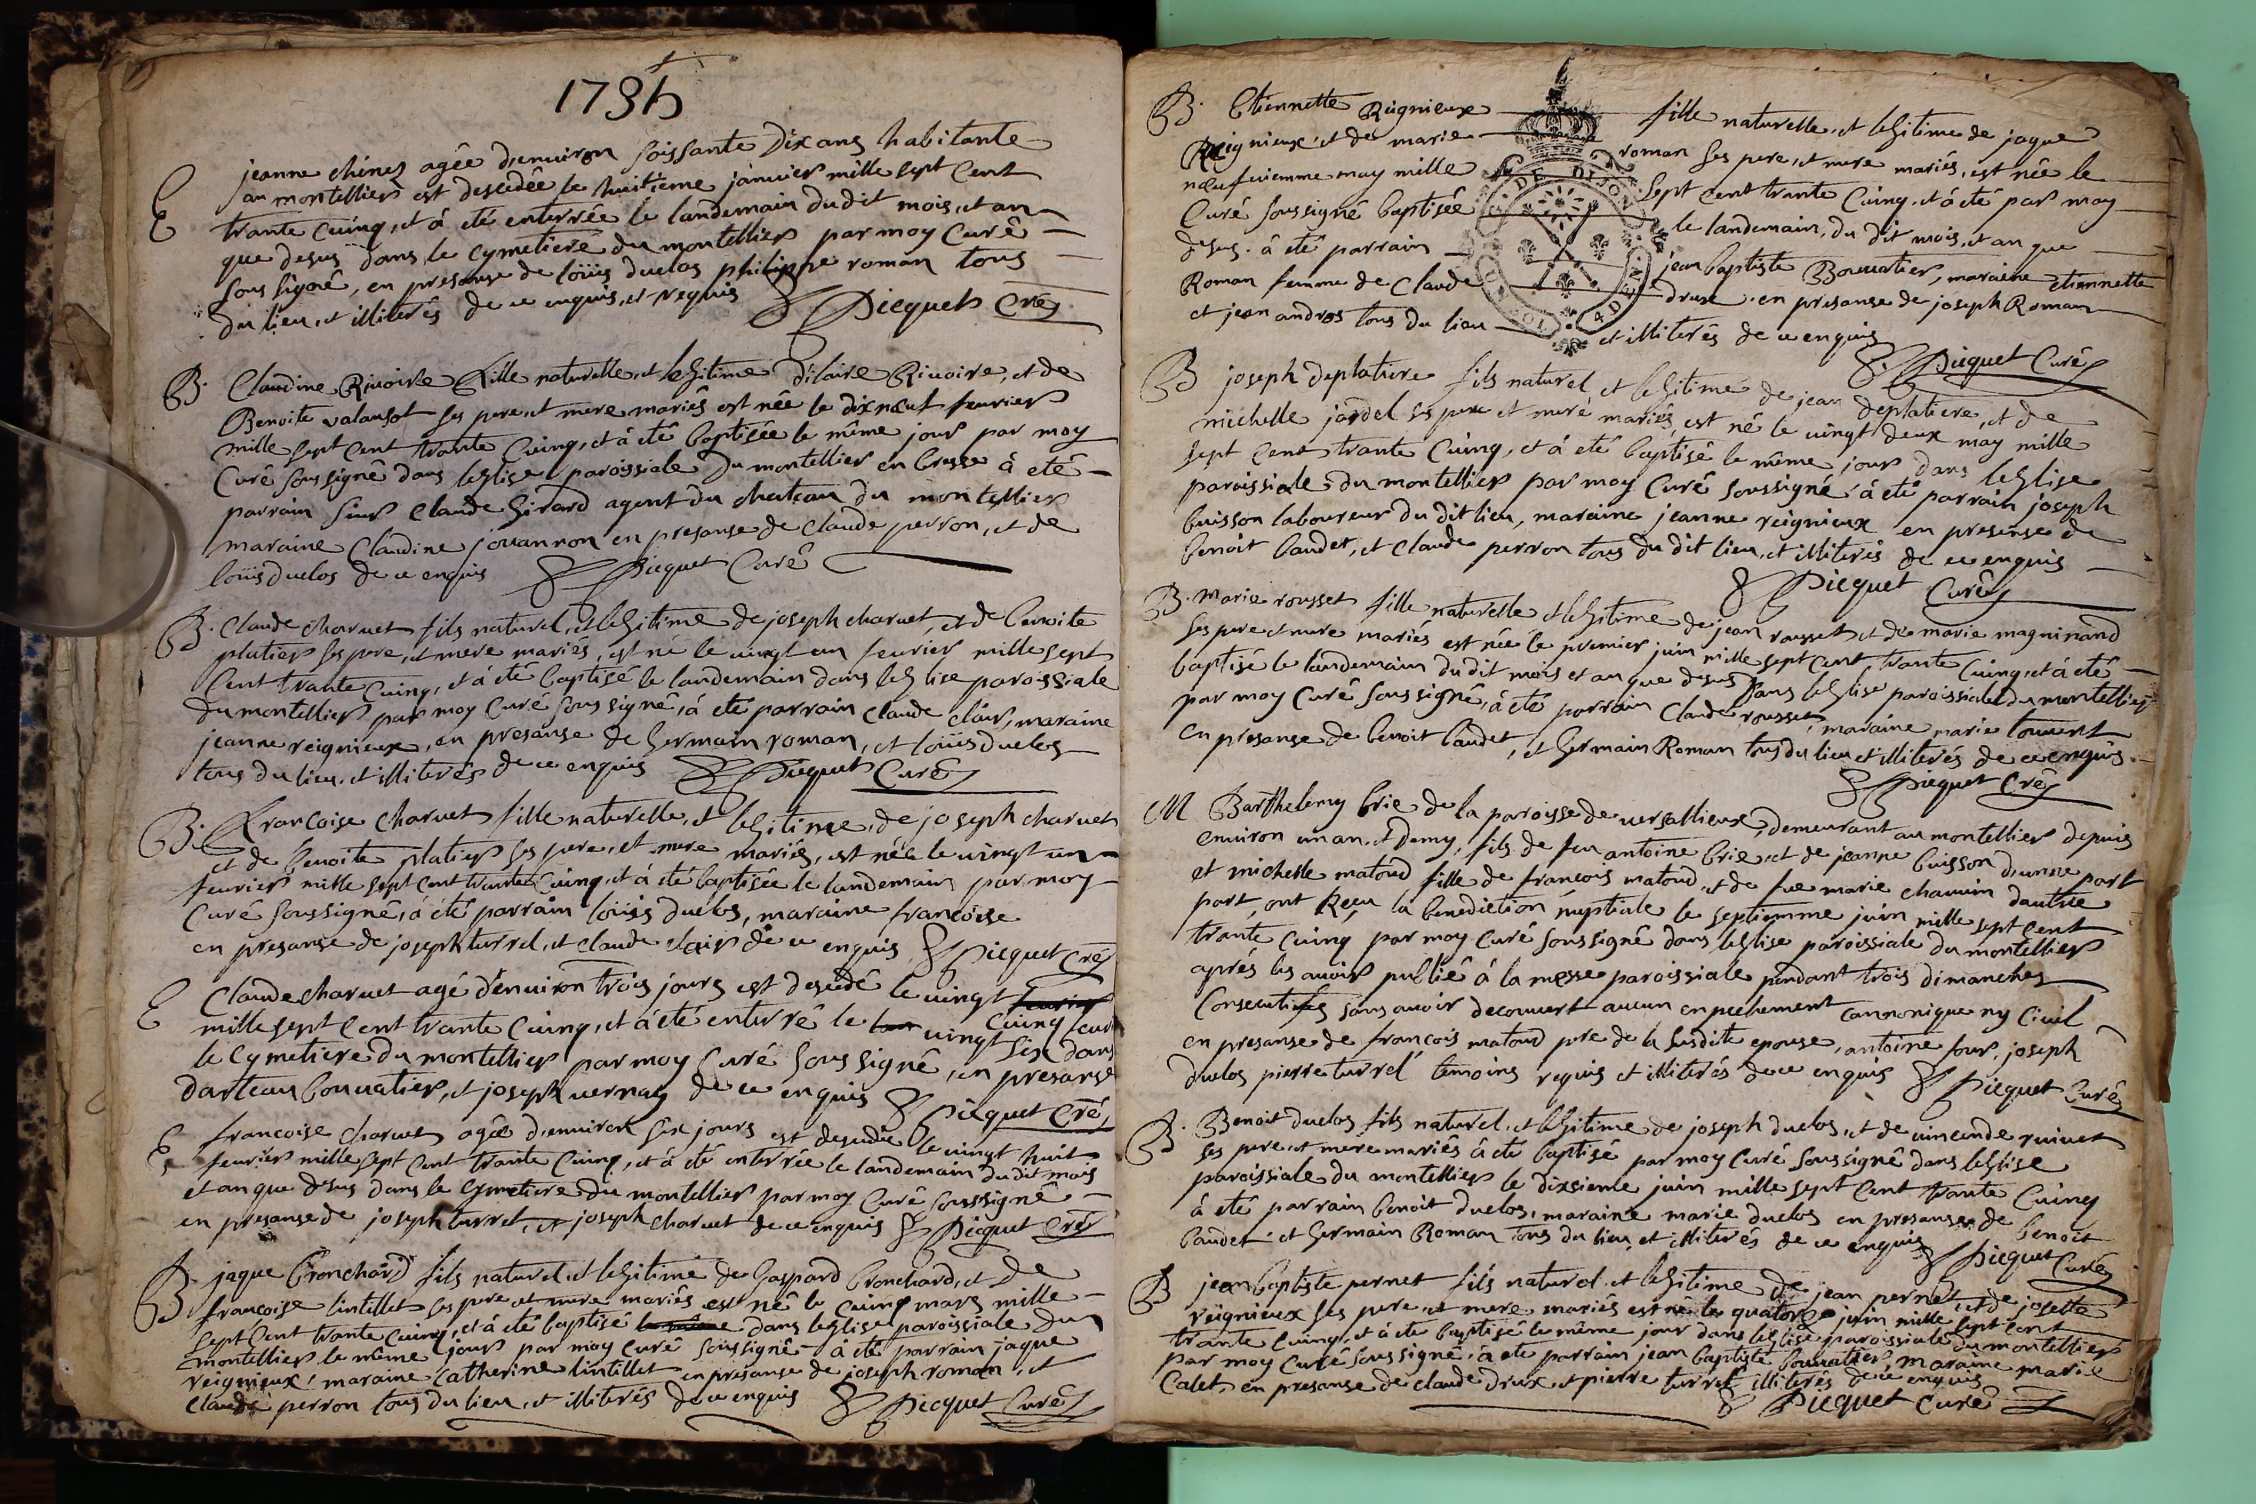 1735
E jeanne chênez agée d'enuiron soissante dix ans habitante
au montellier est desedée le huitieme januier mille sept cent
trante cuinq, et á eté enterrée le landemain du dit mois, et an
que desus dans le cymetiere du montellier par moy curé
soussigné, en presanse de loüis duclos philippe roman tous
du lieu, et illiterés de ce enquis, et requis Picquet Cré
B. Claudine Riuoire fille naturelle, et legitime d'ilaire Riuoire, et de
Benoite valansot ses pere, et mere mariés est née le dix neuf feurier
mille sept cent trante cuinq, et á eté baptisée le même jour par moy
curé soussigné dans leglise paroissiale du montellier en bresse á eté
parrain sieur claude girard agent du chateau du montellier
maraine claudine souannon en presanse de claude perron, et de
loüis duclos de ce enquis Picquet Curé
B. Claude charuet fils naturel, et legitime de joseph charuet, et de benoite
platier ses pere, et mere mariés, est né le uingt un feurier mille sept
cent trante cuinq, et á eté baptisé le landemain dans leglise paroissiale
du montellier par moy curé soussigné, á eté parrain claude clair, maraine
jeanne reignieux, en presanse de germain roman, et loüis duclos
tous du lieu, et illiterés de ce enquis Picquet Curé
B. Francoise charuet fille naturelle, et legitime, de joseph charuet
et de benoite platier ses pere, et mere mariés, est née le uingt un
feurier mille sept cent trante cuinq, et á eté baptisée le landemain par moy
curé soussigné, á eté parrain loüis duclos, maraine francoise
en presanse de joseph turrel, et claude clair de ce enquis Picquet Cré
E Claude charuet agé d'enuiron trois jours est desedé le uingt cuinq feurier
mille sept cent trante cuinq, et á eté enterré le uingt six dans
le cymetiere du montellier par moy curé soussigné, en presanse
d'arteau bouuatier, et joseph uernay de ce enquis Picquet Cré
E francoise charuet agée d'enuiron six jours est desedée le uingt huit
feurier mille sept cent trante cuinq, et á eté enterrée le landemain du dit mois
et an que desus dans le cymetiere du montellier par moy curé soussigné
en presanse de joseph turrel, et joseph charuet de ce enquis Picquet Cré
B. jaque bronchard fils naturel, et legitime de gaspard bronchard, et de
françoise lintillet ses pere et mere mariés est né le cuinq mars mille
sept cent trante cuinq, et á eté baptisé le même dans leglise paroissiale du
montellier le même jour par moy curé soussigné á eté parrain jaque
reignieux, maraine catherine lintillet en presanse de joseph roman, et
claude perron tous du lieu, et illiterés de ce enquis Picquet Curé
B. Etiennette Reignieux fille naturelle, et legitime de jaque
Reignieux et de marie roman ses pere, et mere mariés, est née le
neufuiemme may mille sept cent trante cuinq, et á eté par moy
Curé soussigné baptisée le landemain, du dit mois, et an que
desus. á eté parrain jean baptiste Bouuatier, maraine etiennette
Roman femme de claude drux en presanse de joseph Roman
et jean andros tous du lieu et illiterés de ce enquis
Picquet Curé
DE DIJON
4 DEN
B joseph deplatiere fils naturel et legitime de jean deplatiere, et de
michelle jordel ses pere et meré mariés, est né le uingt deux may mille
sept cent trante cuinq, et á eté baptisé le même jour dans leglise
paroissiale du montellier par moy curé soussigné á eté parrain joseph
buisson laboureur du dit lieu, maraine jeanne reignieux en presense de
benoit baudet, et claude perron tous du dit lieu, et illiterés de ce enquis
Picquet Curé
B. marie rousset fille naturelle et legitime de jean rousset et de marie magninand
ses pere et mere mariés est née le premier juin mille sept cent trante cuinq et á eté
baptisé le landemain du dit mois et an que desus dans leglise paroissiale du montellier
par moy curé soussigné, á eté parrain claude rousset, maraine marie touuent
en presanse de benoit baudet, et germain Roman tous du lieu et illiterés de ce enquis
Picquet Cré
M Barthelemy brie de la paroisse de uersallieux, demeurant au montellier depuis
enuiron un an, et demy, fils de feu antoine brie, et de jeanne buisson d'unne part
et michelle matoud fille de francois matoud, et de fue marie chauuin dautre
part, ont Reçu la benediction nuptiale le septiemme juin mille sept cent
trante cuinq par moy curé soussigné dans leglise paroissiale du montellier
aprés les auoir publié á la messe paroissiale pendant trois dimanches
consecutifs sans auoir decouuert aucun enpechement cannonique ny ciuil
en presanse de françois matoud pere de la susdite epouse, antoine four, joseph
duclos pierre turrel temoins requis et illiterés de ce enquis Picquet Curé
B. Benoit duclos fils naturel, et legitime de joseph duclos, et de uincende ruiuet
ses pere et mere mariés á eté baptisé par moy curé soussigné dans leglise
paroissiale du montellier le dixsieme juin mille sept cent trante cuinq
á eté parrain benoit duclos, maraine marie duclos en presanse de benoit
baudet, et germain Roman tous du lieu, et illiterés de ce enquis Picquet Curé
B jean baptiste pernet fils naturel, et legitime de jean pernet, et de josette
reignieux ses pere, et mere mariés est né le quatorze juin mille sept cent
trante cuinq, et á eté baptisé le même jour dans leglise paroissiale du montellier
par moy curé soussigné, á eté parrain jean baptiste bouuatier, maraine marie
Calet, en presanse de claude drux, et pierre turrel illiterés de ce enquis
Picquet Curé